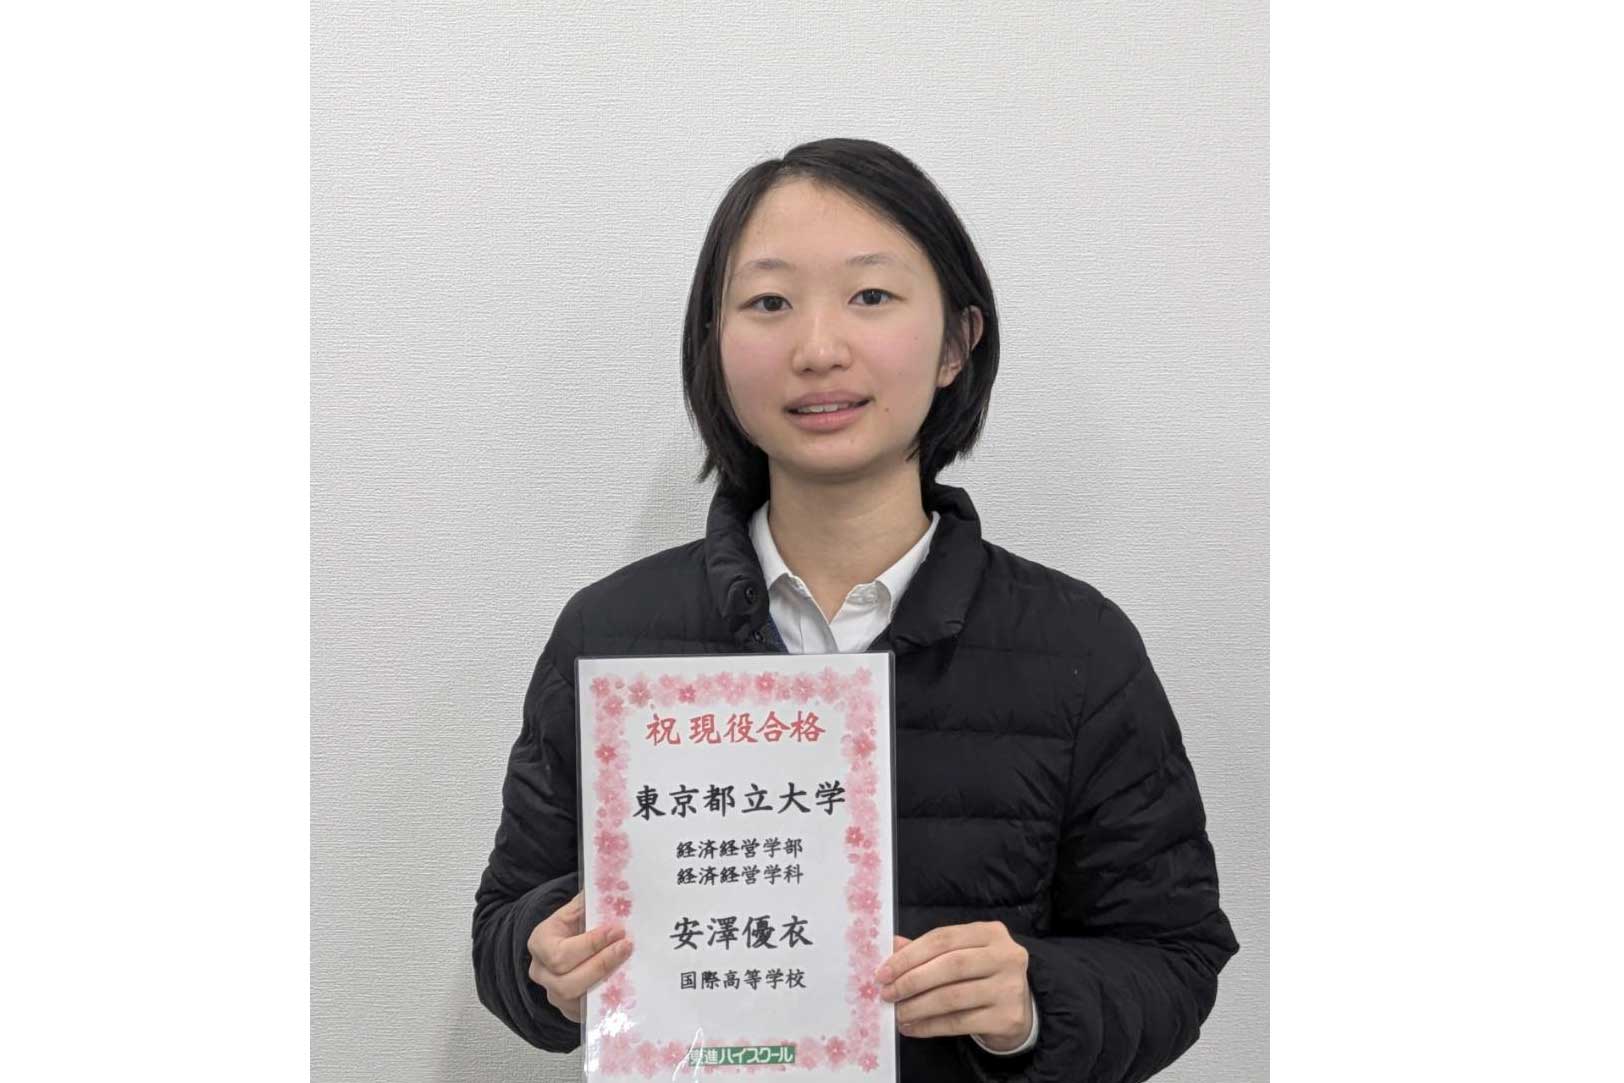 祝 現役合格
東京都立大学
経済経営学部
経済経営学科
安澤優衣
国際高等学校
東進ハイスクール